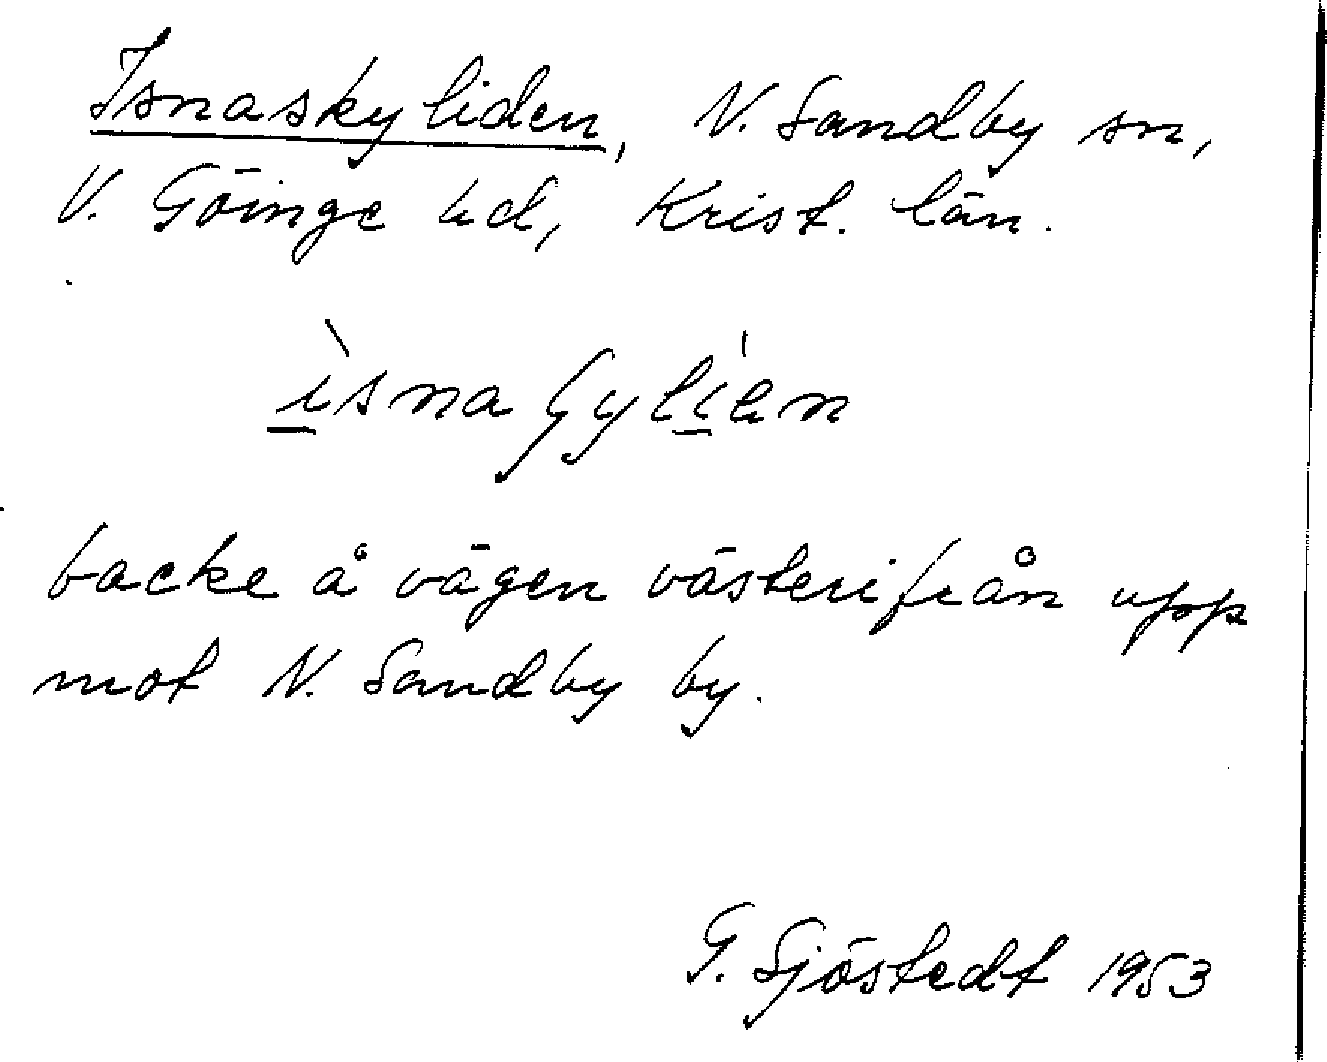 Isnaskyliden, N. Sandby sn,
V. Göinge hd, Krist. län.
ìsnaʃylíen
backe å vägen västerifrån upp
mot N. Sandby by.
G. Sjöstedt 1953